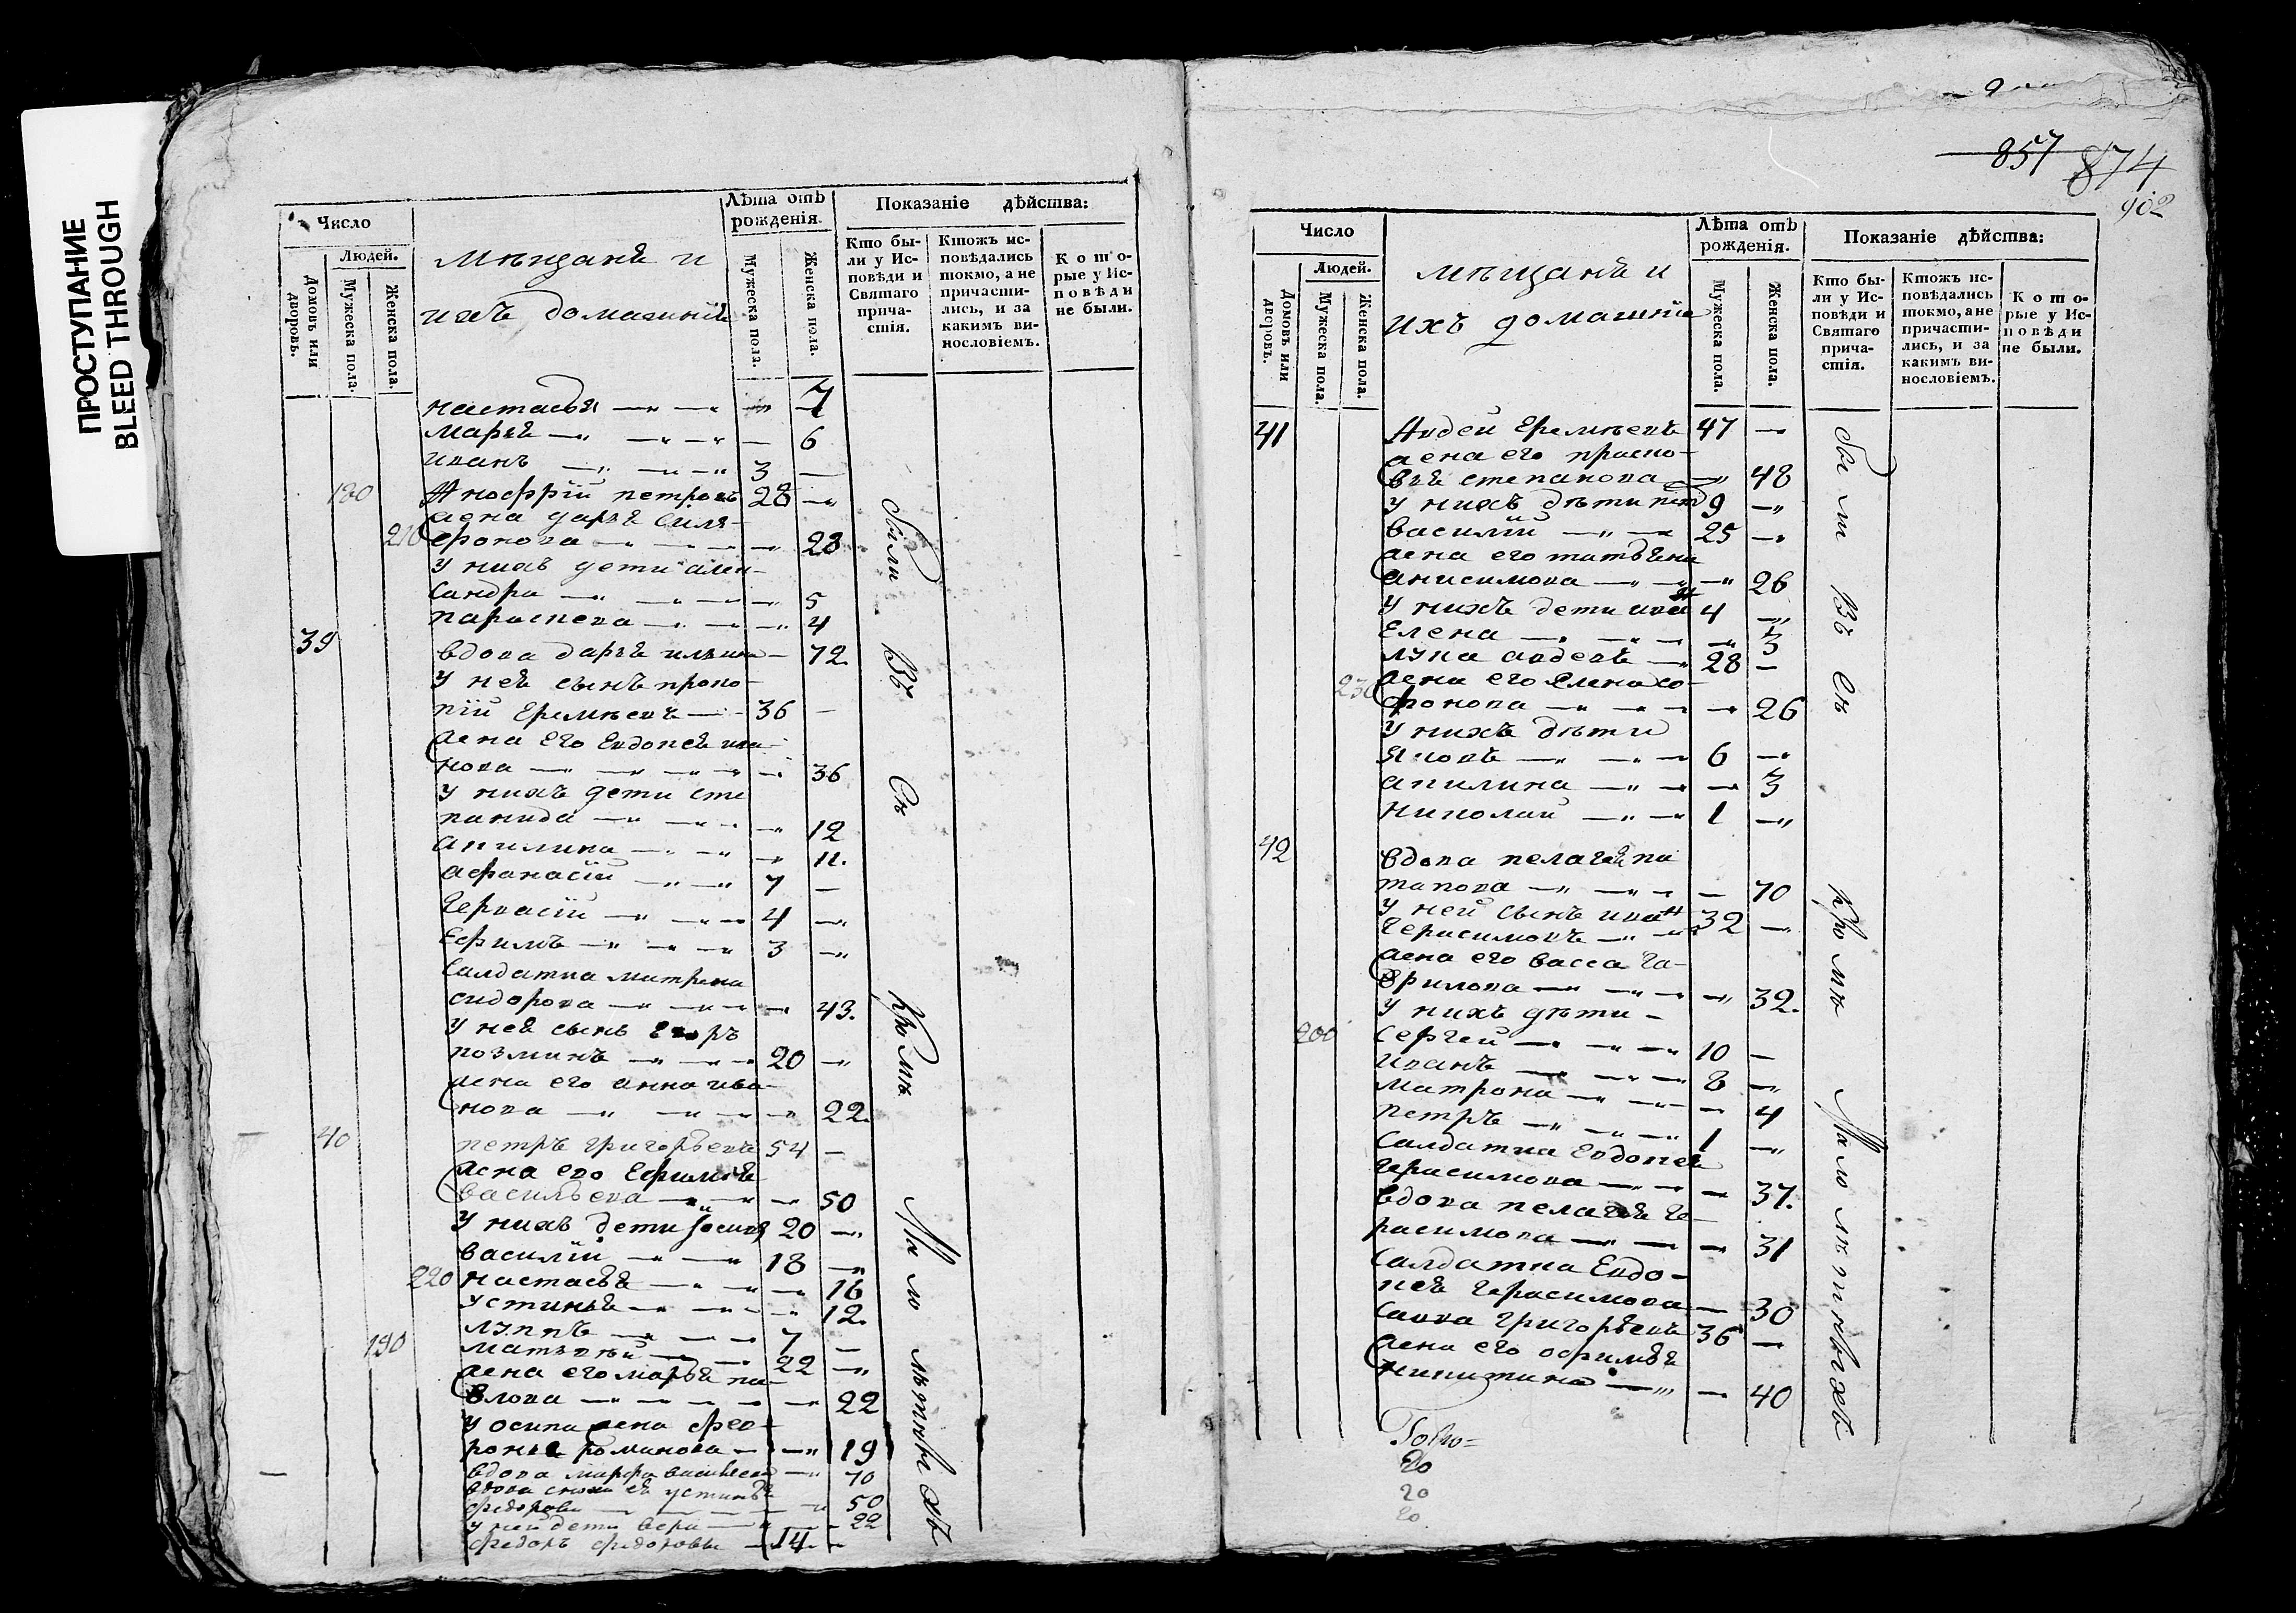 ПРОСТУПАНИЕ
BLEED THROUGH
Число
Людей.
Домовъ или дворовъ.
Мужеска пола.
Женска пола.
мещанѣ и
ихъ домашнии
Лѣта отъ рожденія.
Мужеска пола.
Женска пола.
Показаніе дѣйства:
Кто были у Исповѣди и Святаго причастія.
Ктожъ исповѣдались токмо, а не причастились, и за какимъ винословіемъ.
Которые у Исповѣди не были.
настасья 7
марья 6
иванъ 3
180 Анофрій петровъ 28
жена дарья
210 фронова 28
у нихъ дети алек-
сандра 5
параскева 4
39 вдова дарья ильина 72
у ней сынъ проко-
пій Еремѣевъ 36
жена его Евдокея ива-
нова 36
у нихъ дети сте
панида 12
акилина 11.
афанасій 7
Гервасій 4
Ефимъ 3
салдатка матрена
сидорова 43.
у ней сынъ Егоръ
козминъ 20
жена его анна ива-
нова 22.
40 петръ григорьевъ 54
жена его Ефимья
васильева 50
у нихъ дети Iосипъ 20
василій 18
220 настасья 16
устинья 12.
луппъ 7
190 матвѣй 22
жена его марья па-
влова 22
у осипа жена фев-
ронья романова 19
вдова марфа васильева 70
вдова устинья
федорова 50
у ней дети вера 22
федоръ федоровъ 14
Были въ Съ кромѣ Мало лѣтныхъ
857 874
902
Число
Людей.
Домовъ или дворовъ.
Мужеска пола.
Женска пола.
мѣщанѣ и
ихъ домашніе
Лѣта отъ рожденія.
Мужеска пола.
Женска пола.
Показаніе дѣйства:
Кто были у Исповѣди и Святаго причастія.
Ктожъ исповѣдались токмо, а не причастились, и за какимъ винословіемъ.
Которые у Исповѣди не были.
41 Авдей Еремѣевъ 47
жена его праско-
вья степанова 48
у нихъ дѣти петръ 9
василій 25
жена его татьяна
анисимова 26
у нихъ дети иванъ 4
Елена 3
лука авдевъ 28
230 жена его Елена со-
фонова 26
у нихъ дѣти
Яковъ 6
акилина 3
николай 1
42 вдова пелагея по
тапова 70
у ней сынъ иванъ 32
Герасимовъ
жена его васса Га-
врилова 32.
у нихъ дѣти
200 сергей 10
иванъ 8
матрона 4
петръ 1
салдатка Евдокея
Герасимова 37.
вдова пелагея Ге-
расимова 31
салдатка Евдо-
кея Герасимова 30
савва григорьевъ 36
жена его офимья
никитина 40
Были въ Съ кромѣ Мало лѣтныхъ
20
20
20